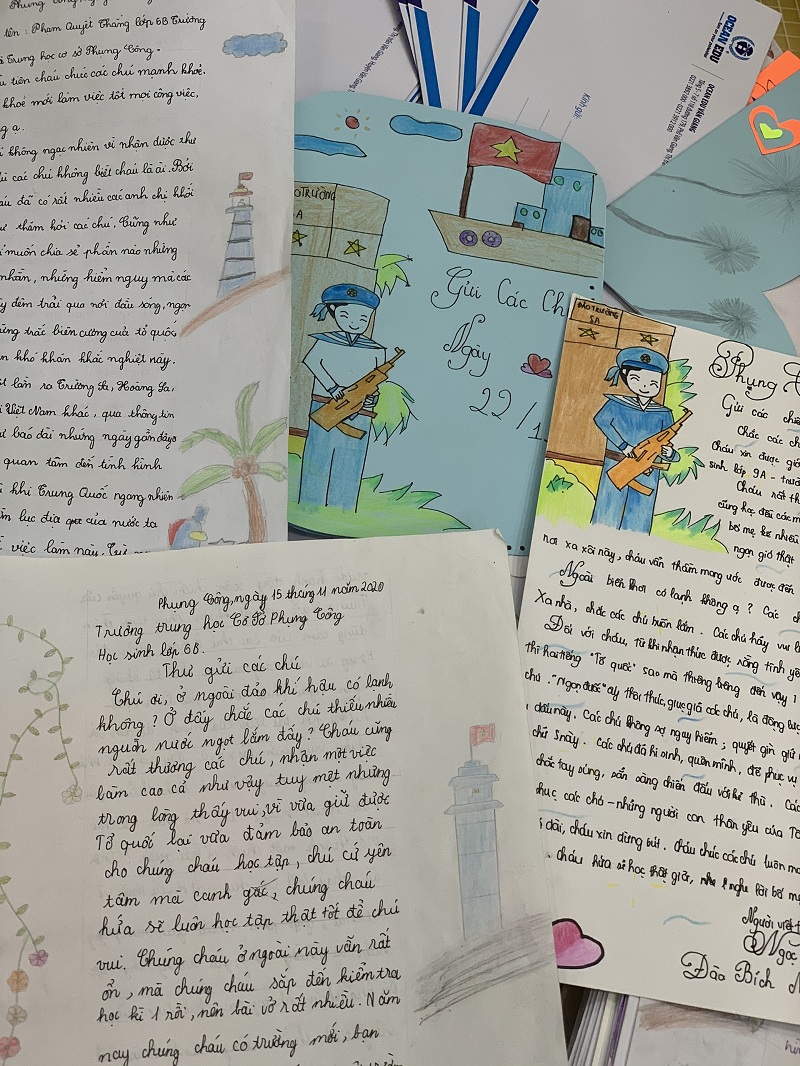 tên : Phạm Quyết Thắng lớp 6B Trường
Trung học cơ sở Phụng Công.
tiên cháu chúc các chú mạnh khoẻ.
khoẻ mới làm việc tốt mọi công việc,
ạ.
không ngạc nhiên vì nhận được thư
các chú không biết cháu là ai. Bởi
đã có rất nhiều các anh chị khối
thăm hỏi các chú. Cũng như
muốn chia sẻ phần nào những
nhằn, những hiểm nguy mà các
đêm trải qua nơi đầu sóng, ngọn
trắc biên cương của tổ quốc,
khó khăn khắc nghiệt này.
lần ra Trường Sa, Hoàng Sa,
Việt Nam khác, qua thông tin
báo đài những ngày gần đây
quan tâm đến tình hình
khi Trung Quốc ngang nhiên
lục địa của nước ta
việc làm này.
OCEAN EDU
OCEAN EDU VĂN GIANG
Kính gửi:
TRƯỜNG
A
Gửi Các Ch
Ngày
22/1
ĐẢO TRƯỜNG
SA
Phụng
Gửi các chiế
Chắc các ch
Cháu xin được giớ
sinh lớp 9A - trườ
Cháu rất th
cùng học đều các m
bố mẹ kể nhiều
ngọn gió thật
nơi xa xôi này, cháu vẫn thầm mong ước được đến
Ngoài biển khơi có lạnh không ạ? Các ch
Xa nhà, chắc các chú buồn lắm. Các chú hãy vui l
Đối với cháu, từ khi nhận thức được rằng tình yê
thì hai tiếng "Tổ quốc" sao mà thiêng liêng đến vậy!
chú. "Ngọn đuốc" ấy thôi thúc, giục giã các chú, là động lực
này. Các chú không sợ nguy hiểm; quyết gìn giữ
chữ S này. Các chú đã hi sinh, quên mình, để phục vụ
chắc tay súng, sẵn sàng chiến đấu với kẻ thù. Các
phục các chú - những người con thân yêu của Tổ
dài, cháu xin dừng bút. Cháu chúc các chú luôn mạ
cháu hứa sẽ học thật giỏi, nghe lời bố mẹ
Người viết t
Ngọc
Đào Bích N
Phụng Công, ngày 15 tháng 11 năm 2020
Trường trung học Cơ Sở Phụng Công
Học sinh lớp 6B.
Thư gửi các chú
Chú ơi, ở ngoài đảo khí hậu có lạnh
không? Ở đấy chắc các chú thiếu nhiều
nguồn nước ngọt lắm đấy? Cháu cũng
rất thương các chú, nhận một việc
làm cao cả như vậy tuy mệt nhưng
trong lòng thấy vui, vì vừa giữ được
Tổ quốc lại vừa đảm bảo an toàn
cho chúng cháu học tập, chú cứ yên
tâm mà canh gác, chúng cháu
hứa sẽ luôn học tập thật tốt để chú
vui. Chúng cháu ở ngoài này vẫn rất
ổn, mà chúng cháu sắp đến kiểm tra
học kì 1 rồi, nên bài vở rất nhiều. Năm
nay chúng cháu có trường mới, bạn